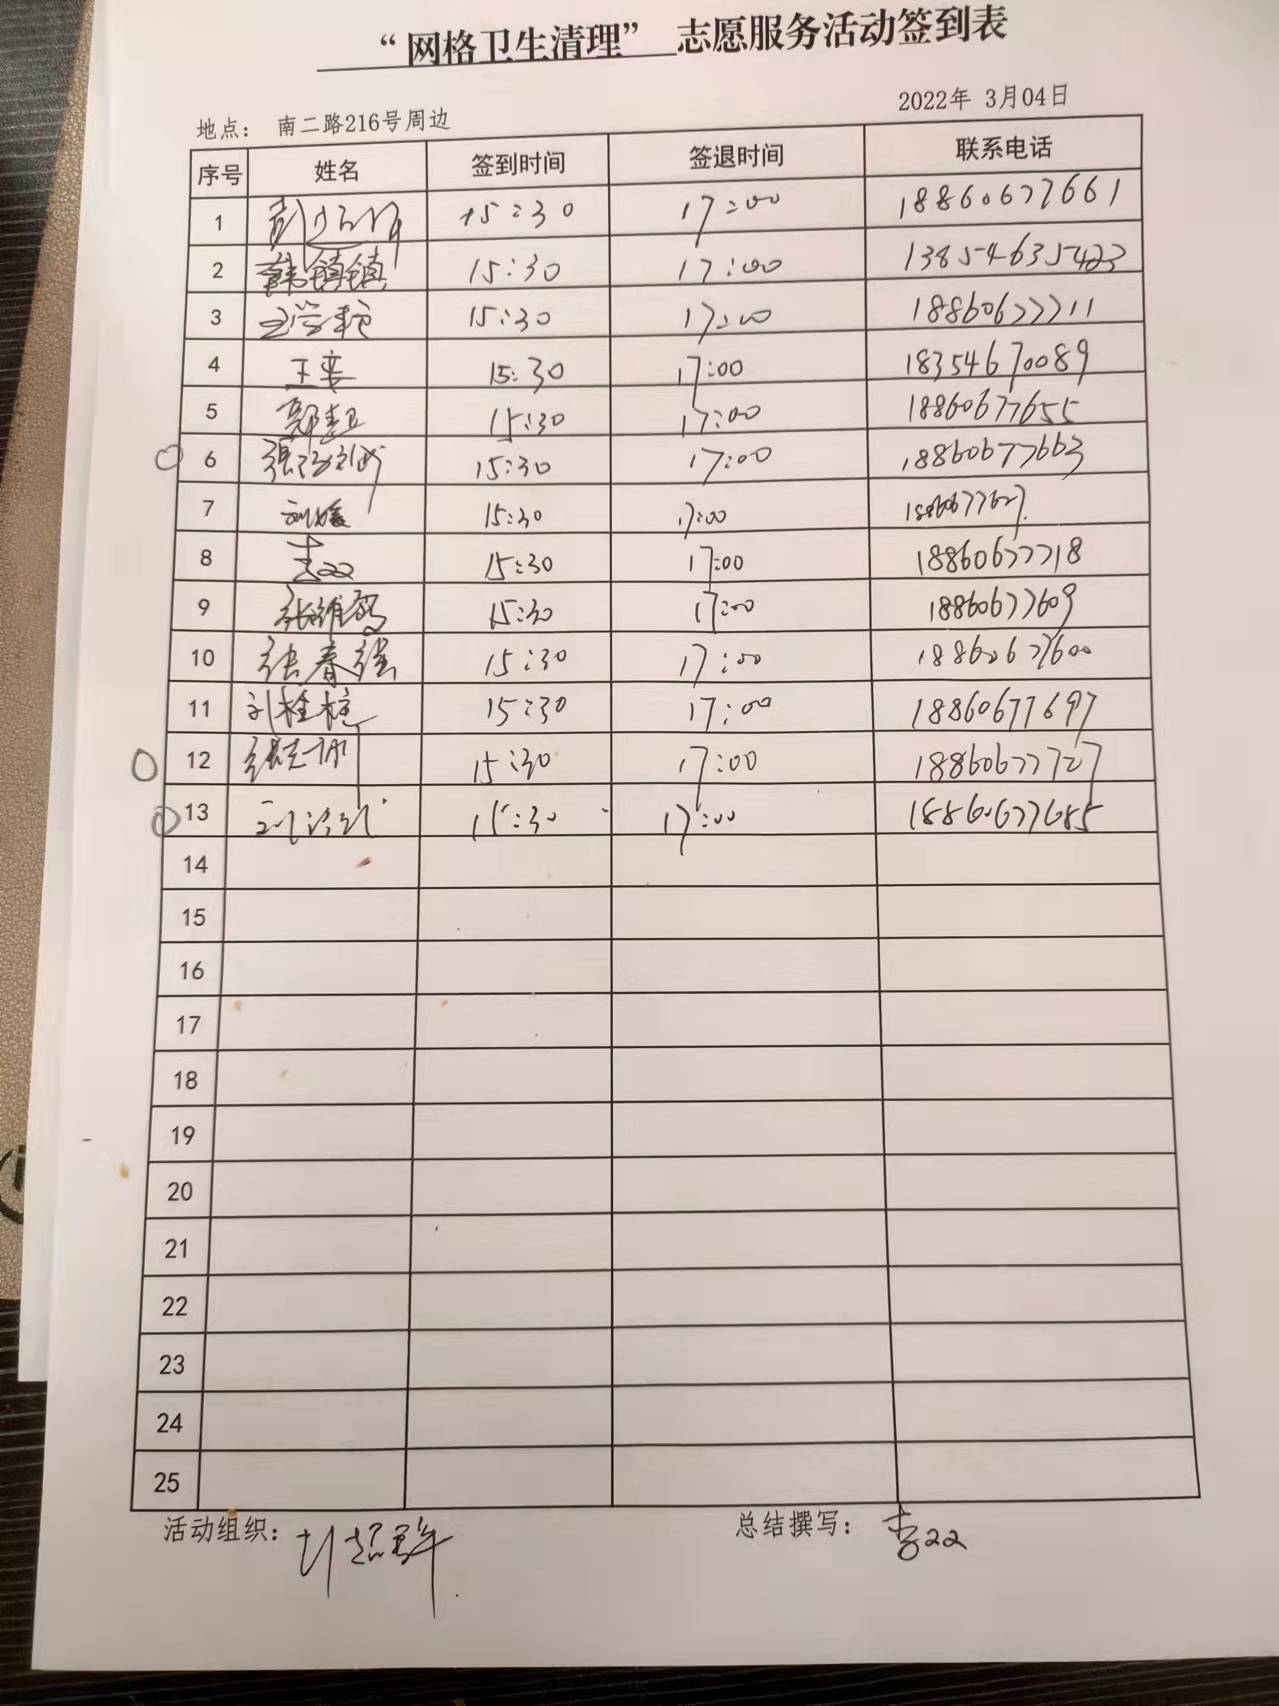 “网格卫生清理” 志愿服务活动签到表
地点： 南二路216号周边 2022年 3月04日
序号 姓名 签到时间 签退时间 联系电话
1 15:30 17:00 18860677661
2 韩镇镇 15:30 17:00 13854635423
3 15:30 17:00 18860677711
4 15:30 17:00 18354670089
5 15:30 17:00 18860677655
6 15:30 17:00 18860677663
7 刘媛 15:30 17:00 18860677627
8 李双 15:30 17:00 18860677718
9 张维芻 15:30 17:00 18860677609
10 张春强 15:30 17:00 18860677600
11 孔桂桂 15:30 17:00 18860677697
12 15:30 17:00 18860677727
13 15:30 17:00 18860677685
14
15
16
17
18
19
20
21
22
23
24
25
活动组织： 总结撰写： 李双